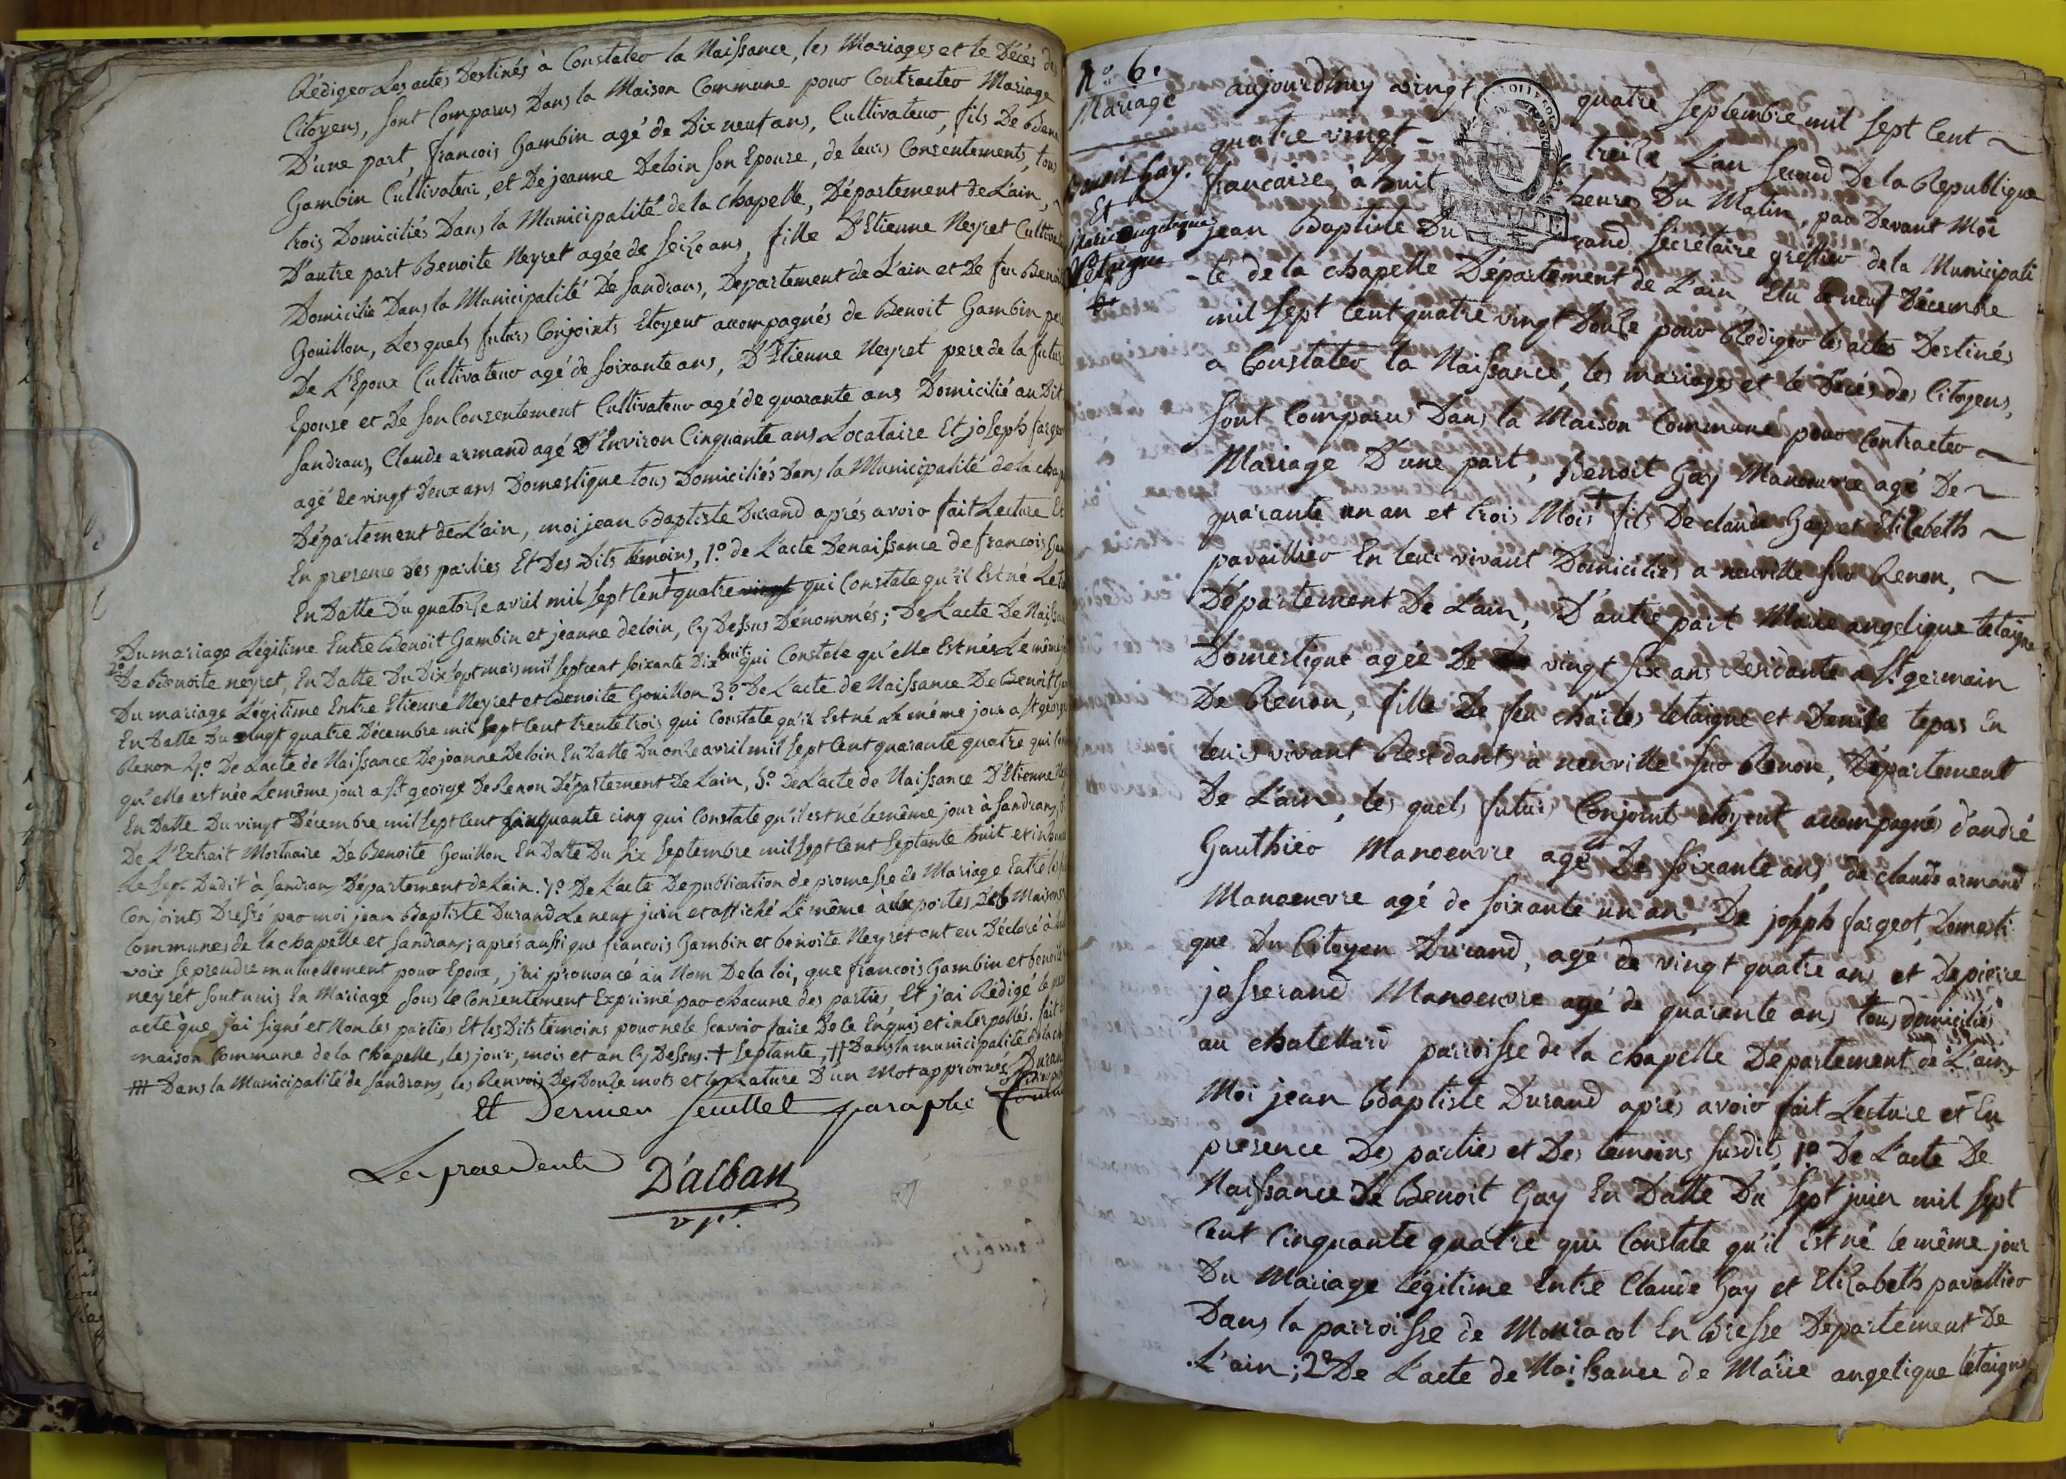 Rédiger Les actes Destinés à Constater la Naissance, les Mariages et le Décés des
Citoyens, sont Comparus Dans la Maison Commune pour Contracter Mariage
D'une part, francois Gambin agé de Dix neuf ans, Cultivateur, fils De Benoit
Gambin Cultivateur, et De jeanne Deloin son Epouse, de leurs Consentements, tous
trois Domiciliés Dans la Municipalité de la chapelle, Département de L'ain,
D'autre part Benoite Neyret agée de seize ans, fille D'Etienne Neyret Cultiva
Domicilié Dans la Municipalité De Sandrans, Departement de L'ain et De feu Benoite
Gouillon, Lesquels futurs Conjoints Etoyent accompagnés de Benoit Gambin pere
De L'Epoux Cultivateur agé de soixante ans, D'Etienne Neyret pere de la future
Epouse et De son Consentement Cultivateur agé de quarante ans Domicilié au Dit
Sandrans, Claude armand agé D'Environ Cinquante ans Locataire Et joseph fargeot
agé de vingt Deux ans Domestique tous Domiciliés Dans la Municipalité de la chap
Département de L'ain, moi jean Baptiste Durand aprés avoir fait Lecture Et
En presence des parties Et Des Dits temoins, 1º. de L'acte De naissance de francois Gam
En Datte Du quatorze avril mil sept Cent quatre vingt qui Constate qu'il Est né Le
Du mariage Légitime Entre Benoit Gambin et jeanne deloin, Cy Dessus Dénommés; De L'acte De Naissa
2º De Benoite neyret, En Datte Du Dix sept mars mil sept cent soixante Dix huit qui Constate qu'elle Est née Le même
Du mariage Légitime Entre Etienne Neyret et Benoite Gouillon 3º. De L'acte de Naissance De Benoit Ga
En Datte Du vingt quatre Décembre mil sept Cent trente trois qui Constate qu'il Est né Le même jour a St george
Renon 4º. De L'acte de Naissance De jeanne Deloin En Datte Du onze avril mil sept Cent quarante quatre qui
qu'elle est née Le même jour a St george De Renon Département De Lain, 5º. De L'acte de Naissance D'Etienne
En Datte Du vingt Décembre mil sept Cent Cinquante cinq qui Constate qu'il est né le même jour à Sandrans,
De L'Extrait Mortuaire De Benoite Gouillon En Datte Du six septembre mil sept Cent septante huit et inhumée
Le sept Dudit à Sandrans Département de Lain. 7º. De L'acte De publication de promesse de Mariage Entre les
Conjoints Dressé par moi jean Baptiste Durand Le neuf juin et affiché Le même aux portes Des Maisons
Communes de la chapelle et Sandrans; aprés aussi que francois Gambin et benoite Neyret ont eu Déclaré à
voix se prendre mutuellement pour Epoux, j'ai prononcé au Nom De la loi, que francois Gambin et benoite
neyrét sont unis En Mariage sous le Consentement Exprimé par chacune des parties Et j'ai Rédigé le
acte que j'ai signé et Non les parties Et les Dits temoins pour ne le scavoir faire De Ce Enquis et interpellés. fait
maison Commune de la Chapelle, les jour, mois et an Cy Dessus. + septante, ++ Dans la municipalité de la
+++ Dans la Municipalité de Sandrans, les Renvois Des Douze mots et la Rature D'un Mot approuvés. Duran
Et Dernier feuillet paraphé
Le president
D'alban
Nº. 6.
Mariage
Benoit Gay.
Et
Marie angelique
Letaigne
aujourdhuy vingt quatre septembre mil sept Cent
quatre vingt - treize, L'an second De la Republique
francaise, à huit heures Du Matin, par Devant Moi
jean Baptiste Durand secretaire greffier de la Municipali
-té de la chapelle Département de L'ain, Elu le neuf Décembre
mil sept Cent quatre vingt Douze pour Rédiger les actes Destinés
a Constater la Naissance, les mariages et le Décés des Citoyens,
sont Comparus Dans la Maison Commune pour Contracter
Mariage D'une part, Benoit Gay Manoeuvre agé De
quarante un an et trois Mois + fils De claude Gay et Elizabeth
pavaillier En leur vivant Domiciliés a neuville sur Renon,
Département De Lain, D'autre part Marie angelique letaigne
Domestique agée De vingt six ans Residante a St. germain
De Renon, fille De feu charles letaigne et Denise tepas En
leurs vivant Résidants à neuville sur Renon, Département
De L'ain, les quels futurs Conjoint etoyent accompagnés d'andré
Gauthier Manoeuvre agé De soixante ans, de claude armand
Manoeuvre agé de soixante un an, De joseph fargeot, Domesti
que Du Citoyen Durand, agé de vingt quatre ans et De pierre
josserand Manoeuvre agé de quarante ans tous domiciliés
au chatellard parroisse de la chapelle Département de L'ain,
Moi jean Baptiste Durand apres avoir fait Lecture et En
presence Des parties et Des temoins susdits, 1º De L'acte De
Naissance De Benoit Gay En Datte Du sept juin mil sept
Cent Cinquante quatre qui Constate qu'il Est né le même jour
Du Mariage légitime Entre Claude Gay et Elizabeth pavallier
Dans la parroisse de Monracol En Bresse Département De
L'ain; 2º De L'acte de Naissance de Marie angelique létaigne